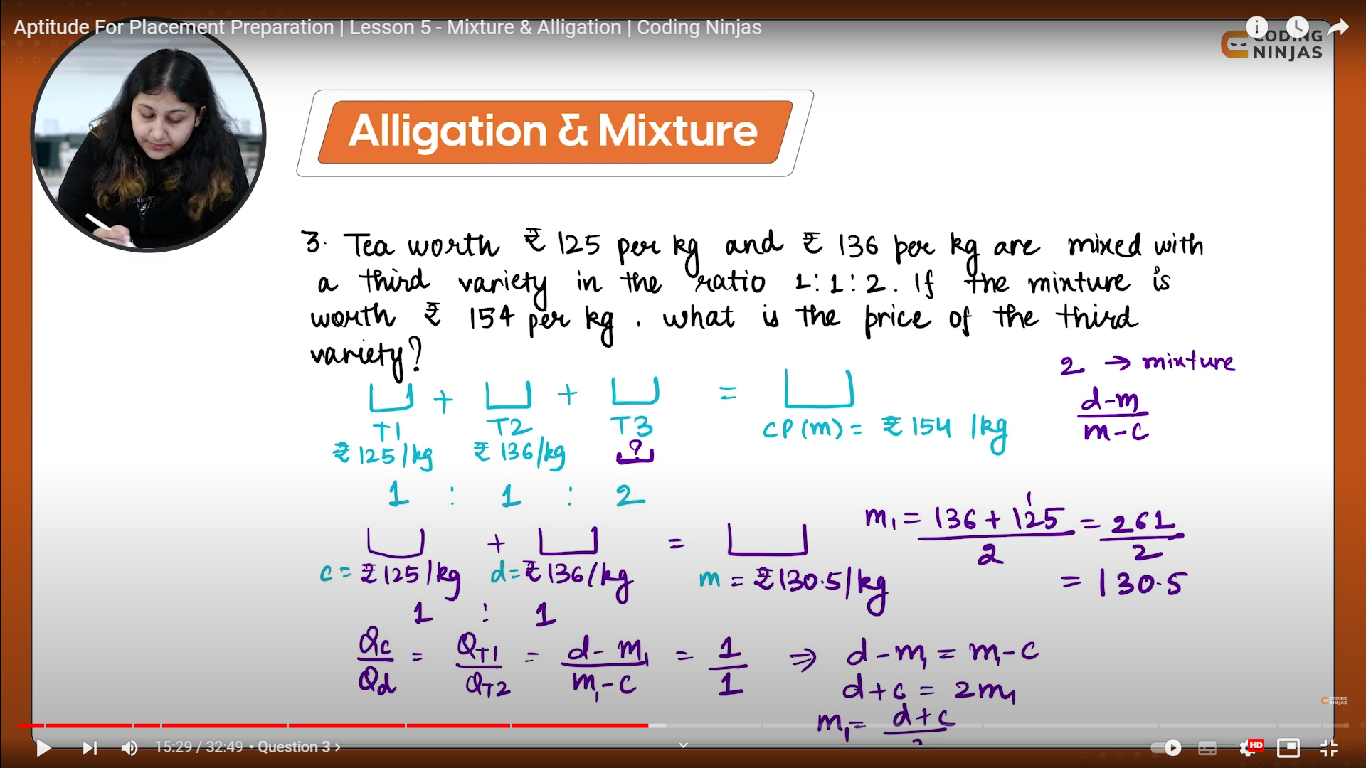 Aptitude For Placement Preparation | Lesson 5 - Mixture & Alligation | Coding Ninjas
CODING
NINJAS
Alligation & Mixture
3. Tea worth ₹ 125 per kg and ₹ 136 per kg are mixed with
a third variety in the ratio 1:1:2. If the mixture is
worth ₹ 154 per kg. what is the price of the third
variety?
2 → mixture
d-m
m-c
+ + =
T1 T2 T3 CP(m) = ₹ 154 /kg
₹ 125/kg ₹ 136/kg ?
1 : 1 : 2
m₁ = 136 + 125 = 261
2 2
= 130.5
+ =
c = ₹ 125/kg d = ₹ 136/kg m = ₹ 130.5/kg
1 : 1
Qc = QT1 = d - m₁ = 1 ⇒ d - m₁ = m₁ - c
Qd QT2 m₁ - c 1
d + c = 2m₁
m₁ = d + c
CODING NINJAS
15:29 / 32:49 • Question 3 ›
HD